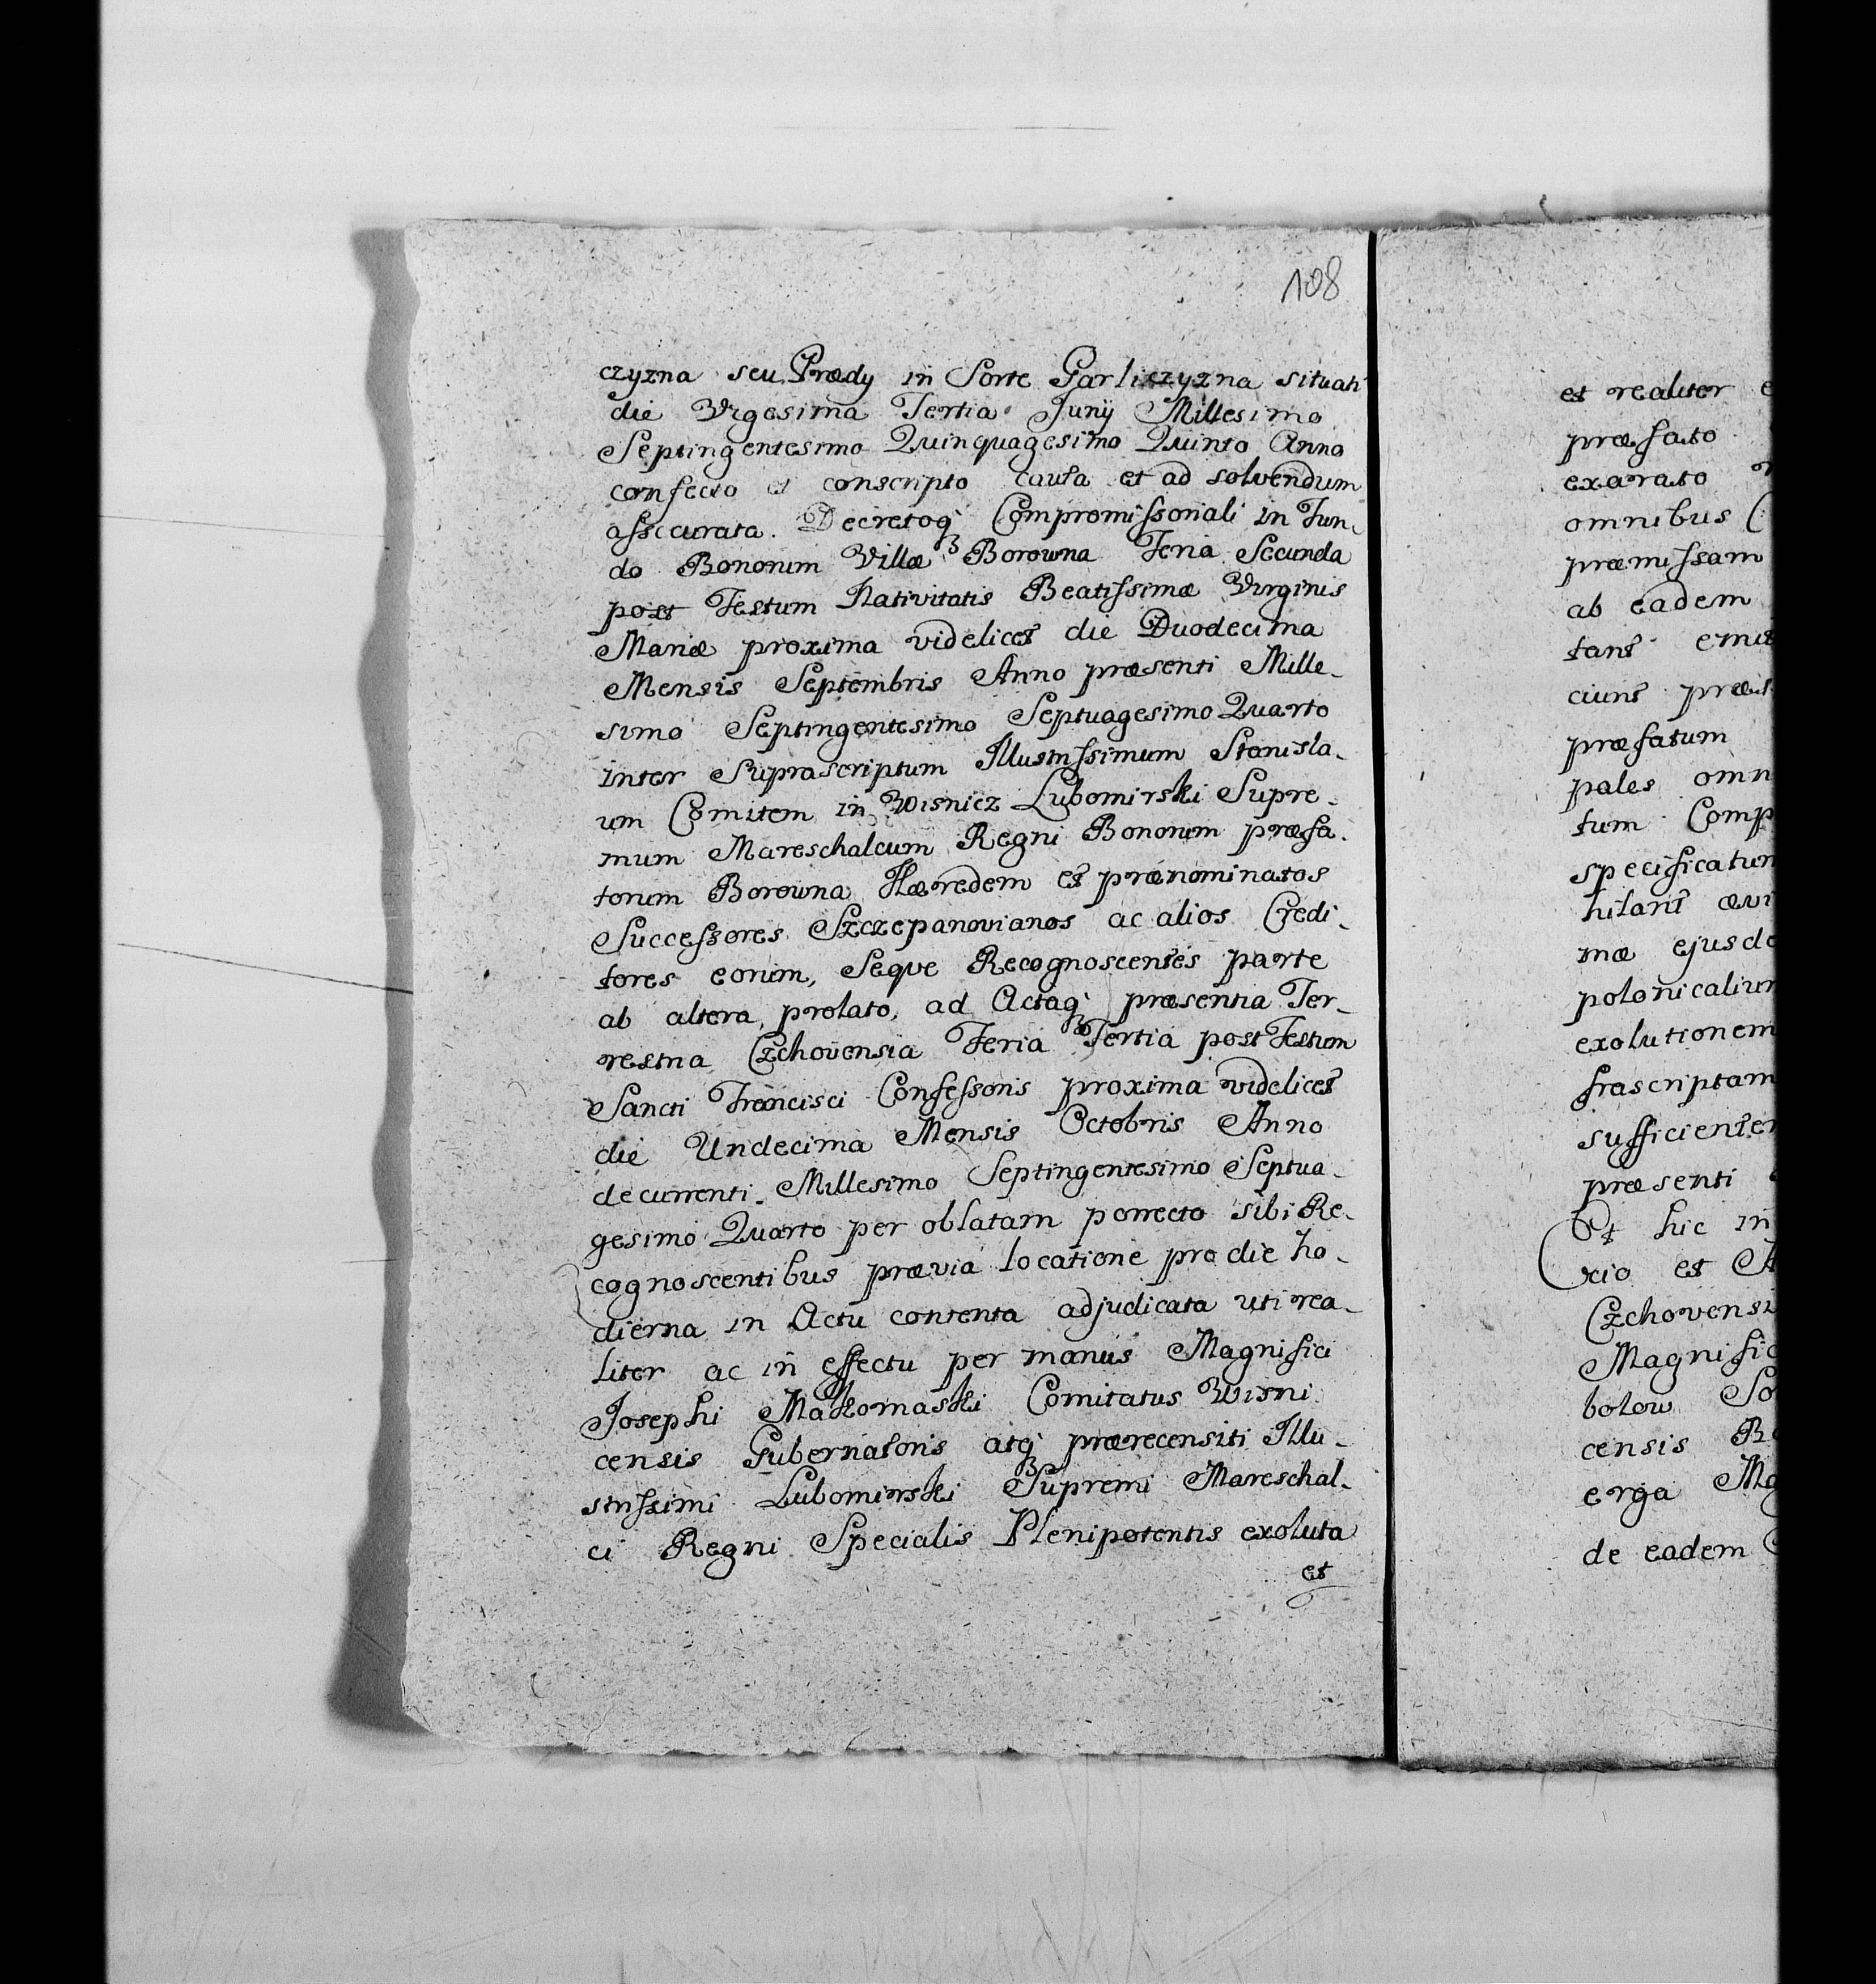 108
czyzna seu Prædy in Sorte Garliczyzna situati
die Vigesima Tertia Junÿ Millesimo
Septingentesimo Quinquagesimo Quinto Anno
confecto et conscripto cauta et ad solvendum
assecurata. Decretoq3 Compromissoriali in Fun-
do Bonorum Villæ Borowna Feria Secunda
post Festum Nativitatis Beatissimæ Virginis
Mariæ proxima videlicet die Duodecima
Mensis Septembris Anno præsenti Mille-
simo Septingentesimo Septuagesimo Quarto
inter Suprascriptum Illustrissimum Stanisla-
um Comitem in Wisnicz Lubomirski Supre-
mum Mareschalcum Regni Bonorum præfa-
torum Borowna Hæredem et prænominatos
Successores Szczepanovianos ac alios Credi-
tores eorum, Seque Recognoscentes parte
ab altera, prolato, ad Actaq3 præsentia Ter-
restria Czchoviensia Feria Tertia post Festum
Sancti Francisci Confessoris proxima videlicet
die Undecima Mensis Octobris Anno
decurrenti Millesimo Septingentesimo Septua-
gesimo Quarto per oblatam porrecto sibi Re-
cognoscentibus prævia locatione pro die ho-
dierna in Actu contenta adjudicata uti rea-
liter ac in effectu per manus Magnifici
Josephi Makomaski Comitatus Wisni
censis Gubernatoris atq3 prærecensiti Illu-
strissimi Lubomirski Supremi Mareschal-
ci Regni Specialis Plenipotentis exoluta
et
et realiter
præfato
exarato
omnibus
præmissam
ab eadem
tant
ciunt
præfatum
pales
tum
specificatum
mæ
exolutionem
præsenti
Et hic in
xio et
de eadem